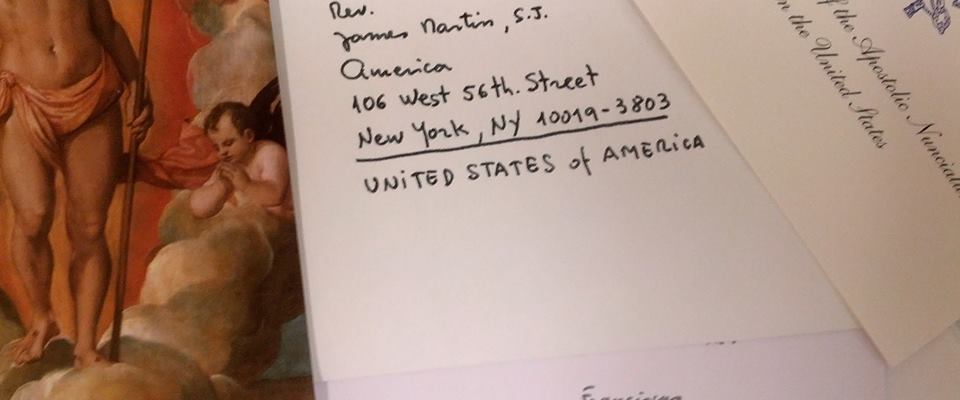 Rev.
James Martin, S.J.
America
106 West 56th. Street
New York, NY 10019-3803
UNITED STATES of AMERICA
of the Apostolic Nunciature
in the United States
Franciscus